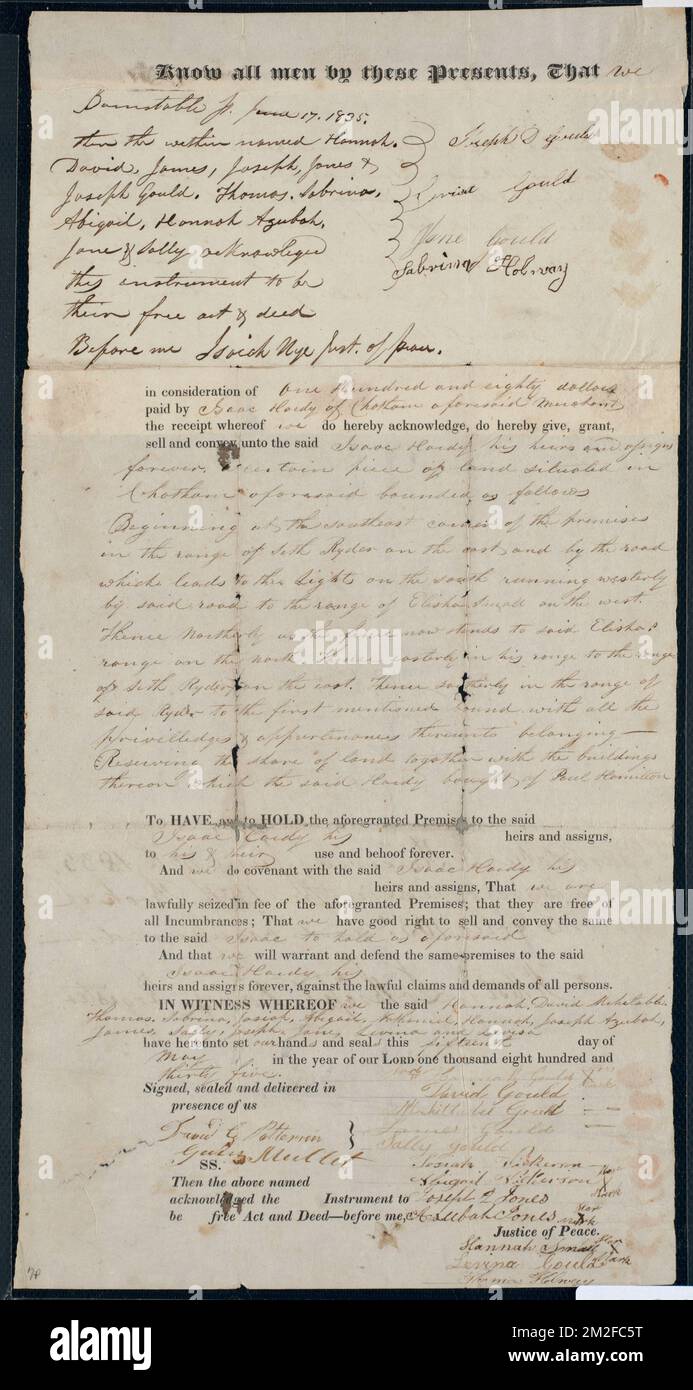 Know all men by these Presents, That we
Barnstable ss. June 17. 1835.
then the within named Hannah.
David, James, Joseph, Jones &
Joseph Gould. Thomas. Sabrina.
Abigail, Hannah Azubah.
Jane & Sally acknowledged
this instrument to be
their free act & deed
Before me Isaiah Nye Just. of Peace.
Joseph Gould
Gould
Jane Gould
Sabrina Holway
in consideration of one hundred and eighty dollars
paid by Isaac Hardy of Chatham aforesaid Merchant
the receipt whereof we do hereby acknowledge, do hereby give, grant,
sell and convey unto the said Isaac Hardy his heirs and assigns
forever, a certain piece of land situated in
Chatham aforesaid bounded as follows
Beginning at the southeast corner of the premises
in the range of Seth Ryder on the east and by the road
which leads to the Light on the south running westerly
by said road to the range of Elisha Smal on the west.
Thence Northerly as the fence now stands to said Elisha's
range on the north Thence easterly in his range to the range
of Seth Ryder on the east. Thence southerly in the range of
said Ryder to the first mentioned bound with all the
Privilledges & appertinances thereunto belonging —
Reserving the share of land together with the buildings
thereon which the said Hardy bought of Paul Hamilton
To HAVE and to HOLD the aforegranted Premises to the said
Isaac Hardy his heirs and assigns,
to his & their use and behoof forever.
And we do covenant with the said Isaac Hardy his
heirs and assigns, That we are
lawfully seized in fee of the aforegranted Premises; that they are free of
all Incumbrances; That we have good right to sell and convey the same
to the said Isaac to hold as aforesaid
And that we will warrant and defend the same premises to the said
Isaac Hardy his
heirs and assigns forever, against the lawful claims and demands of all persons.
IN WITNESS WHEREOF we the said Hannah, David Mehitable
Thomas, Sabrina, Josiah, Abigail, Hannah, Joseph Azubah,
James, Sally, Joseph, Jane, Levina and
have hereunto set our hands and seals this sixteenth day of
May in the year of our LORD one thousand eight hundred and
thirty five.
Signed, sealed and delivered in
presence of us
David G Patterson
Mullet
Hannah Gould X mark
David Gould
Mehittabel Gould
James Gould
Sally Gould
Josiah Nickerson
Abigail Nickerson X Her mark
Joseph Z Jones
Azubah Jones X Her mark
Hannah Smal X Her Mark
Levina Gould
Thomas Holway
SS.
Then the above named
acknowledged the Instrument to
be free Act and Deed—before me,
Justice of Peace.
alamy
Image ID: 2M2FC5T
www.alamy.com